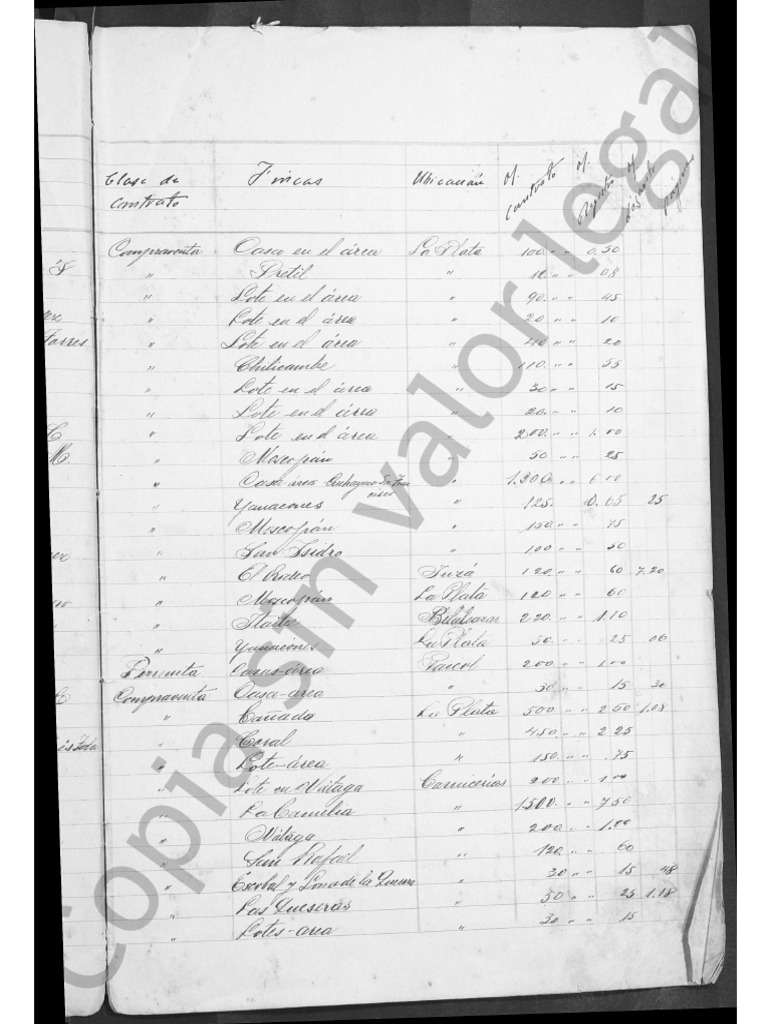 Clase de contrato Fincas Ubicación Vr. contrato Vr. Registro
Compraventa Casco en el área La Plata 100. " " 0.50
" Pretil " 16. " " 08
" Lote en el área " 90. " " 45
" Lote en el área " 20 " " 10
" Lote en el área " 40 " " 20
" Chilicambe " 110. " " 55
" Lote en el área " 30 " " 15
" Lote en el área " 20. " " 10
" Lote en el área " 200. " " 1.00
" Moscopán " 50 " " 25
" Casa área " 1.200. " " 6.00
" Yanacones " 125. " 0.65 25
" Moscopán " 150. " " 75
" San Isidro " 100 " " 50
" El Rodeo 120. " " 60 7.20
" Moscopán La Plata 120 " " 60
" Itaibe Belalcazar 220. " " 1.10
" Yanacones La Plata 50. " " 25 00
Permuta Casas-área Paicol 200. " " 1.00
Compraventa Casa-area " 30. " " 15 30
" Cañada La Plata 500 " " 2.50 1.08
" Coral " 450. " " 2.25
" Lote-área " 150. " " .75
" Lote en Nátaga Carnicerías 200 " " 1.00
" La Camelia " 1500. " " 7.50
" Nátaga " 200. " " 1.00
" San Rafael " 120. " " 60
" Escobal y Loma de la 30 " " 15 48
" Las Queseras " 50 " " 25 1.18
" Lotes-area " 30 " " 15
Copia sin valor legal